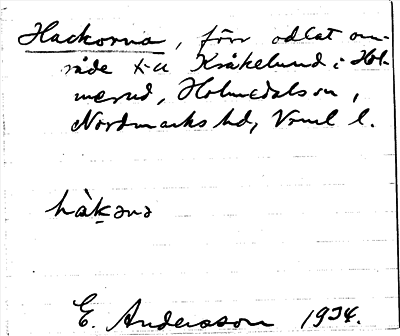 Hackorna, förr odlat om-
råde t.u. Kråkelund i Hol-
merud, Holmedals sn,
Nordmarks hd, Vrml l.
hàkana
E. Andersson 1934.